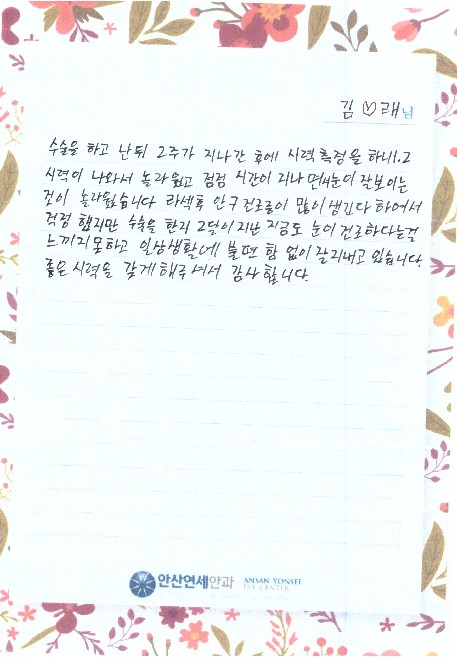 김♡래님
수술을 하고 난뒤 2주가 지나간 후에 시력측정을 하니 1.2
시력이 나와서 놀라웠고 점점 시간이 지나면서 눈이 잘보이는
것이 놀라웠습니다 라섹후 안구건조증이 많이 생긴다 하여서
걱정 했지만 수술을 한지 2달이 지난 지금도 눈이 건조하다는걸
느끼지 못하고 일상생활에 불편 함 없이 잘지내고 있습니다.
좋은 시력을 갖게 해주셔서 감사 합니다.
안산연세안과 ANSAN YONSEI
EYE CENTER